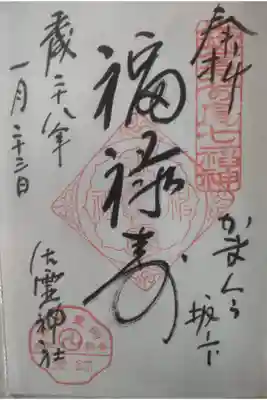 奉拝
七福神
かまくら
坂ノ下
福禄寿
平成二十八年
一月二十三日
御靈神社